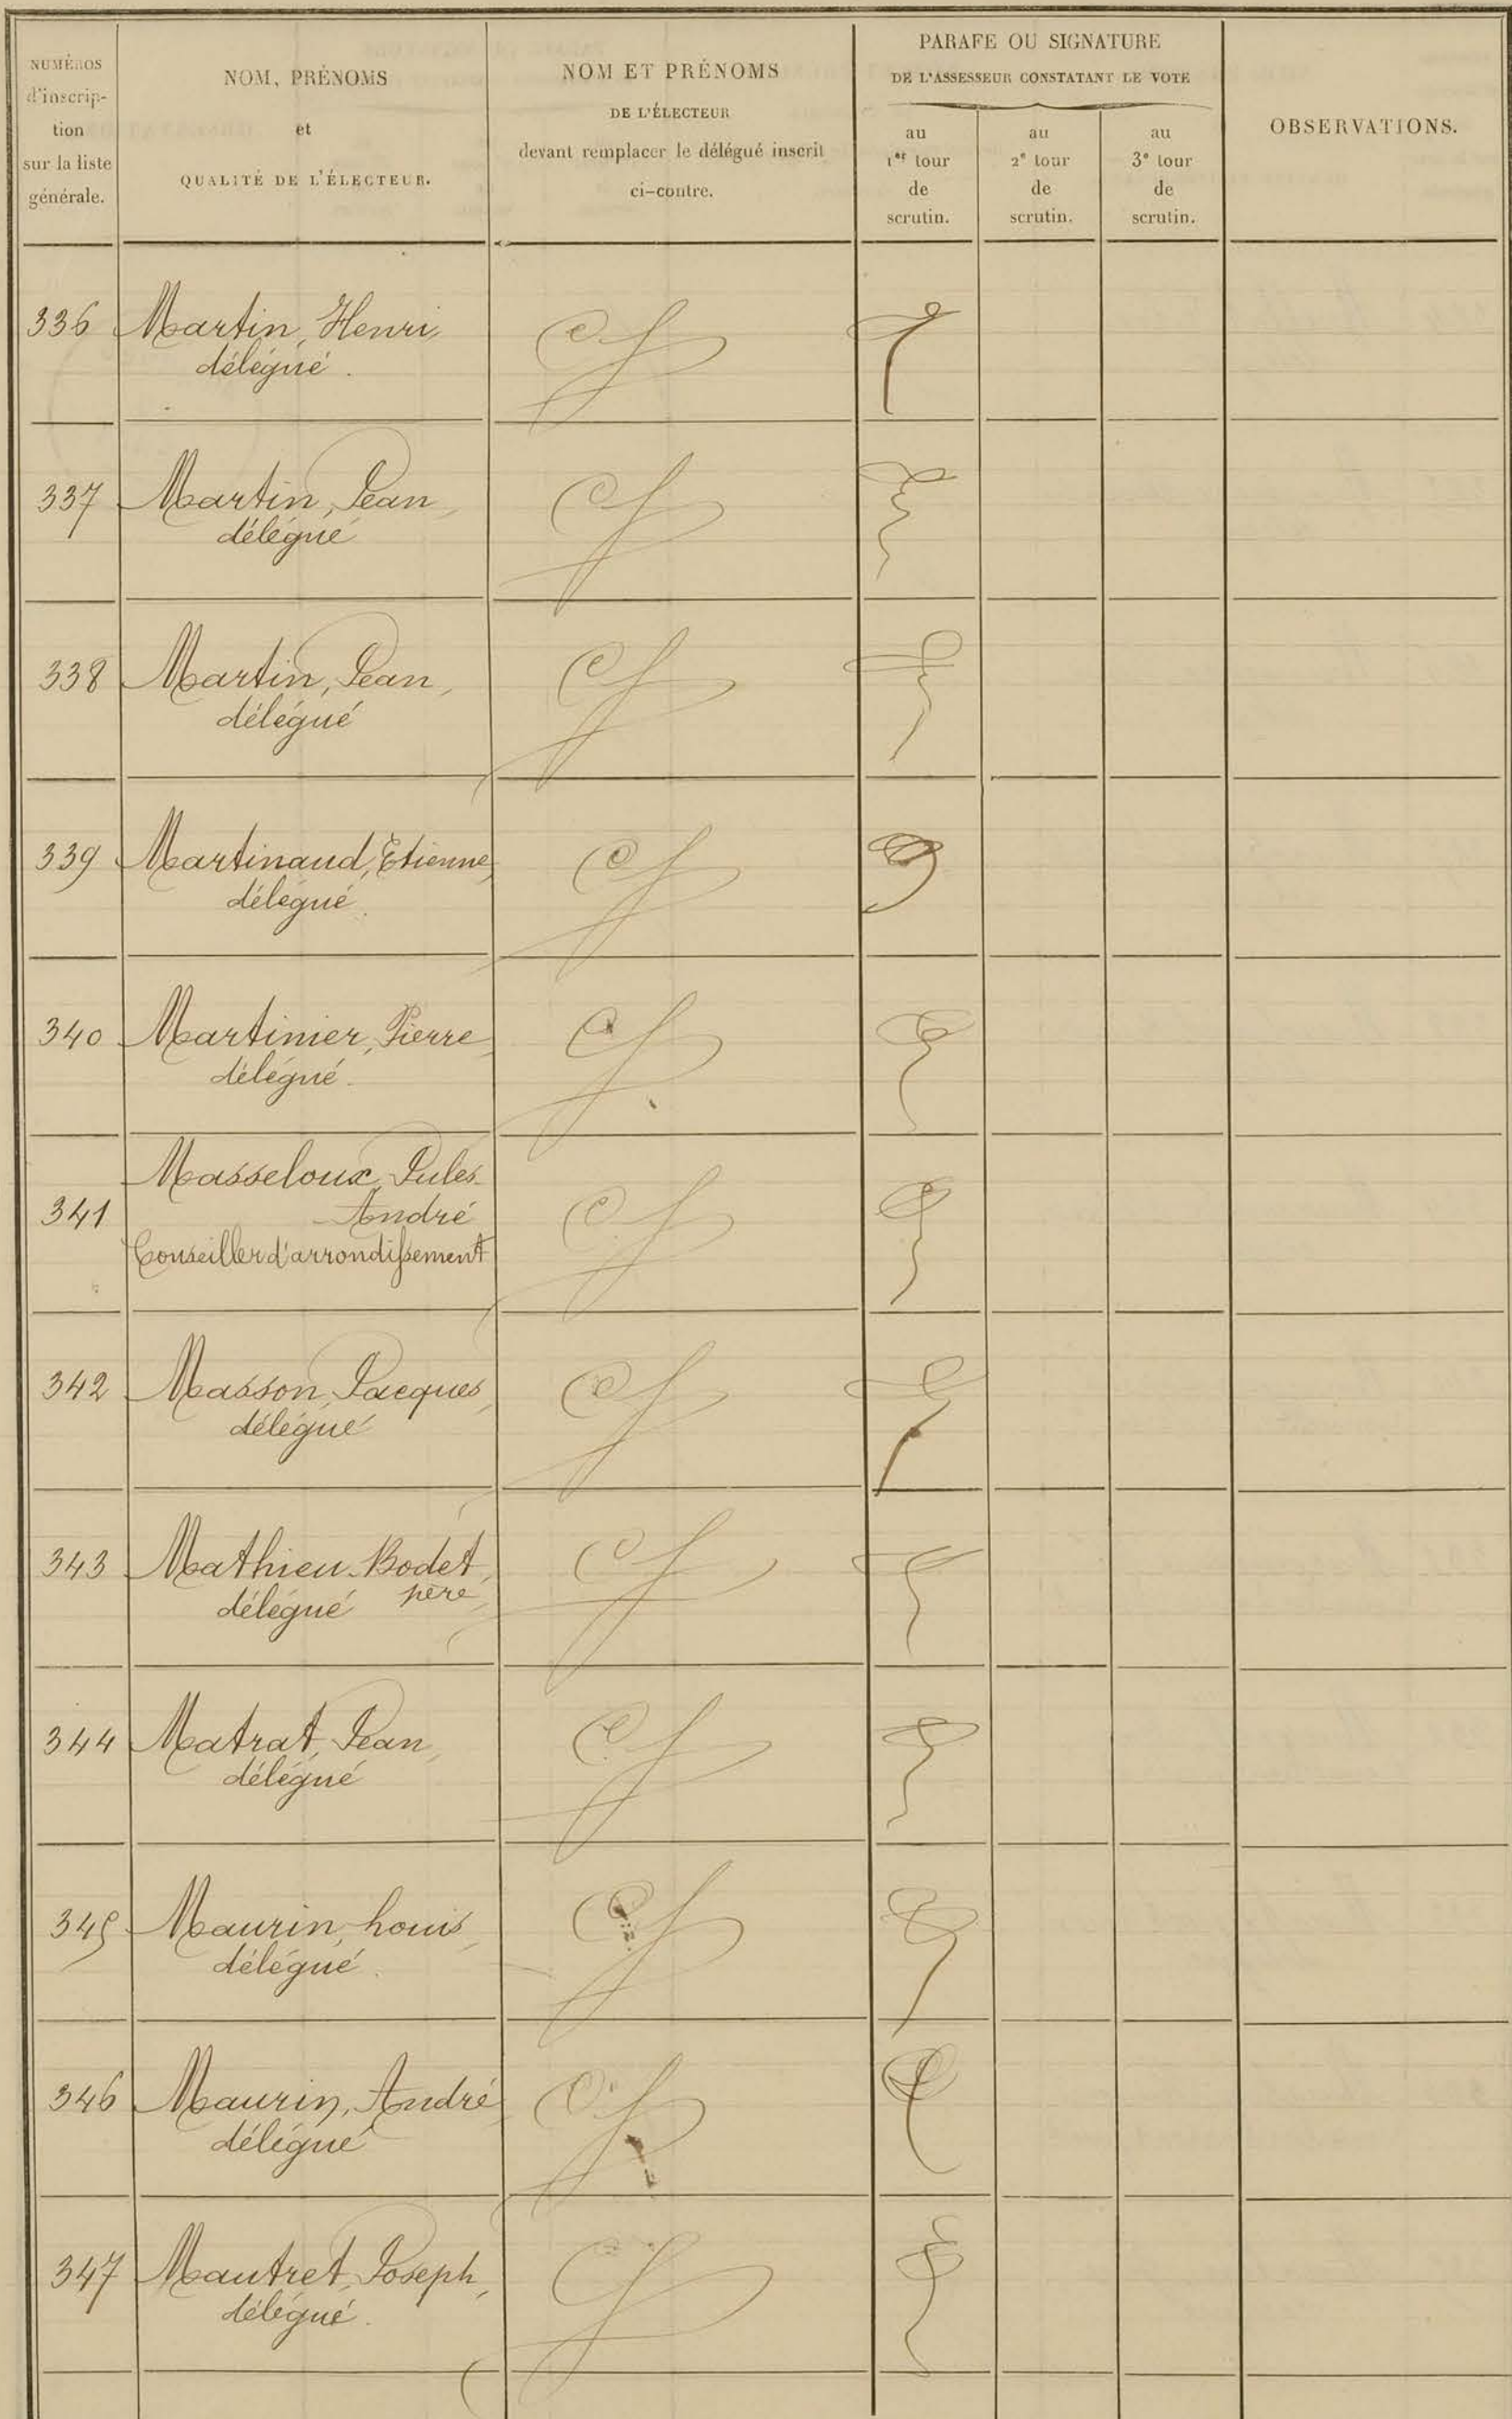 NUMÉROS
d'inscrip-
tion
sur la liste
générale.
NOM, PRÉNOMS
et
QUALITÉ DE L'ÉLECTEUR.
NOM ET PRÉNOMS
DE L'ÉLECTEUR
devant remplacer le délégué inscrit
ci-contre.
PARAFE OU SIGNATURE
DE L'ASSESSEUR CONSTATANT LE VOTE
au
1er tour
de
scrutin.
au
2e tour
de
scrutin.
au
3e tour
de
scrutin.
OBSERVATIONS.
336 Martin, Henri,
délégué.
337 Martin, Jean,
délégué
338 Martin, Jean,
délégué
339 Martinaud, Etienne,
délégué.
340 Martinier, Pierre,
délégué.
Masseloux, Jules-
341 André
Conseiller d'arrondissement
342 Masson, Jacques,
délégué
343 Mathieu-Bodet,
délégué père,
344 Matrat, Jean,
délégué
345 Maurin, Louis,
délégué.
346 Maurin, André
délégué
347 Mautret, Joseph,
délégué.